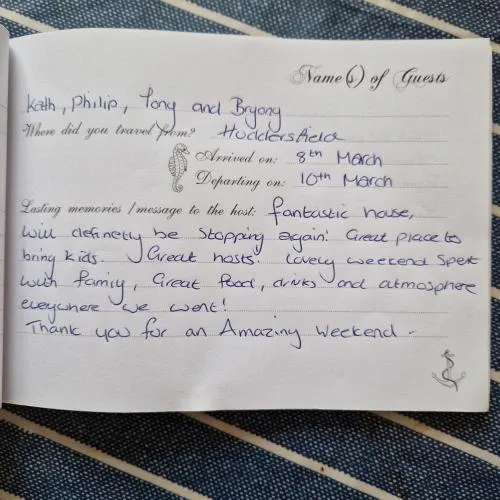 Name(s) of Guests
Kath, Philip, Tony and Bryony
Where did you travel from? Huddersfield
Arrived on: 8th March
Departing on: 10th March
Lasting memories / message to the host: fantastic house,
will definetly be stopping again! Great place to
bring kids. Great hosts. Lovely weekend spent
with family, Great food, drinks and atmosphere
everywhere we went!
Thank you for an Amazing weekend -